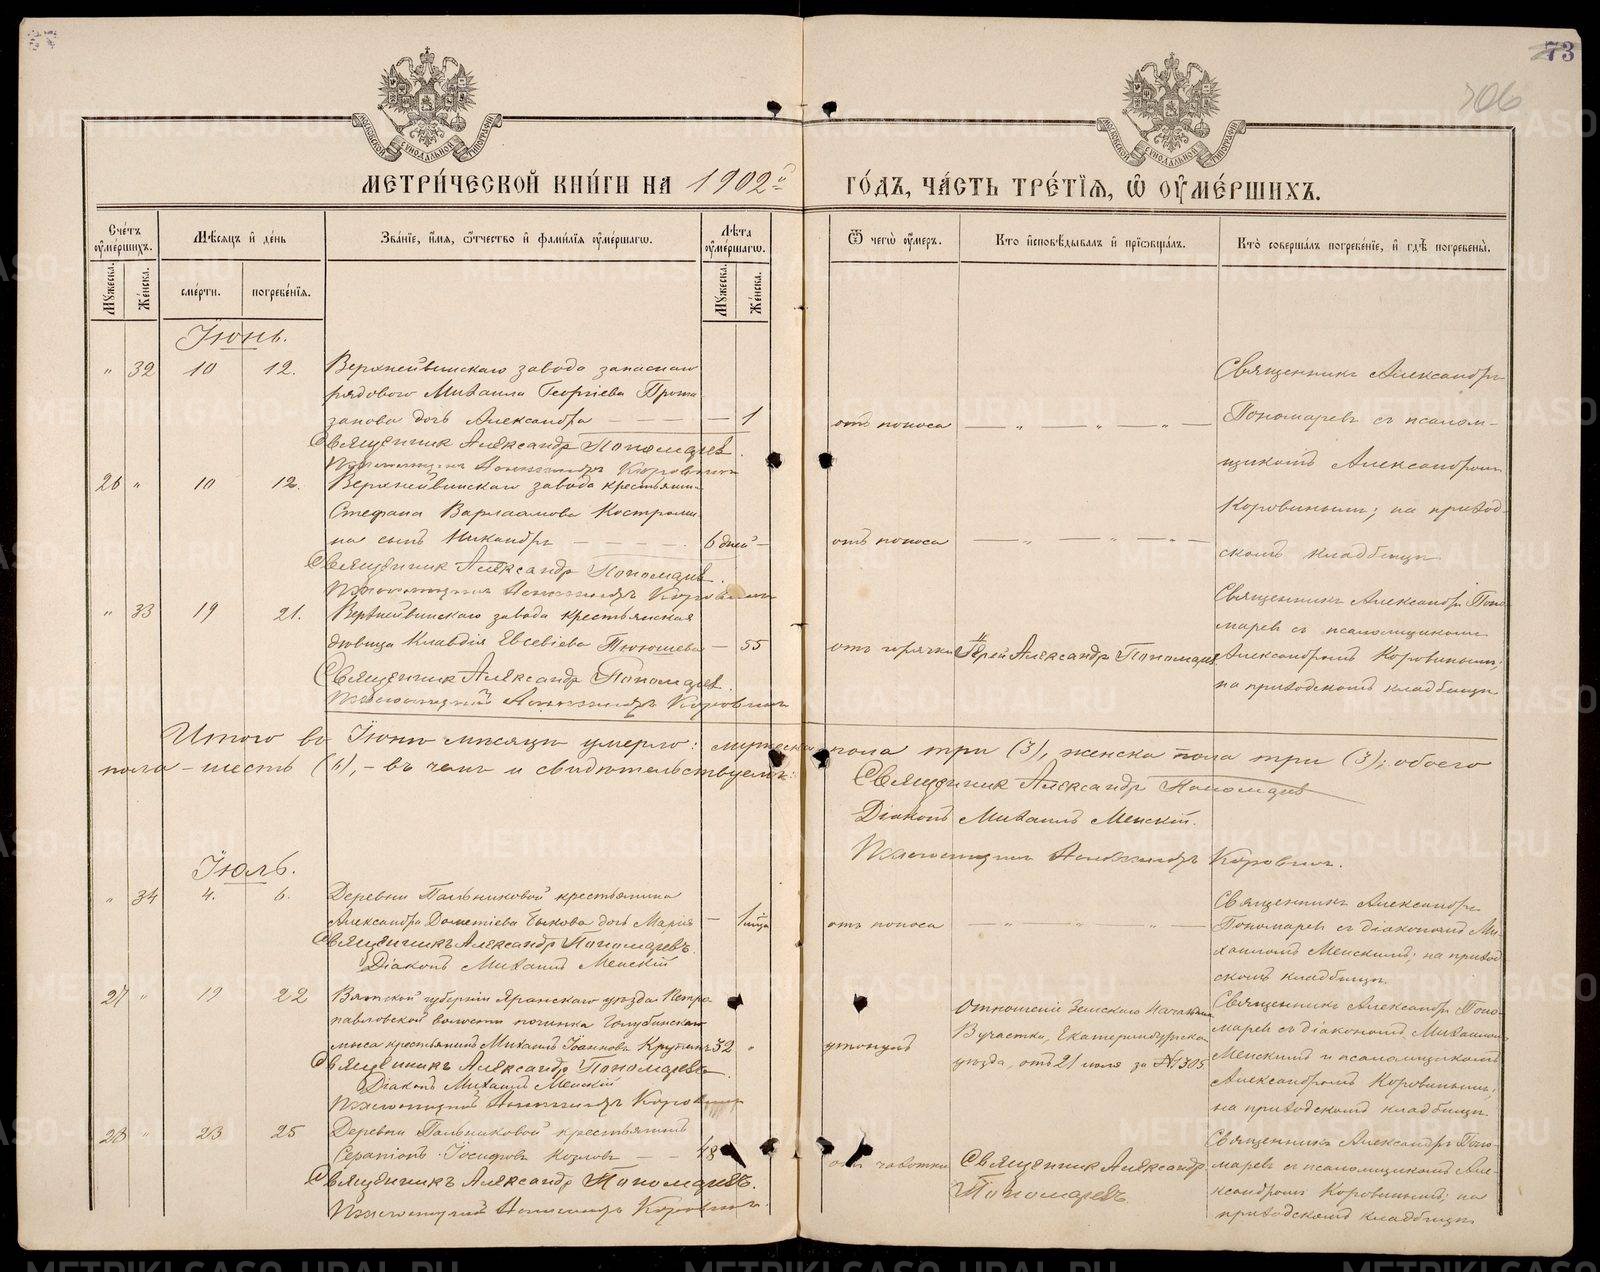 73
306
МЕТРИ́ЧЕСКОЙ КНИ́ГИ НА 1902 ГО́ДЪ, ЧА́СТЬ ТРЕ́ТЇѦ, Ѡ҆ ОУ҆МЕ́РШИХЪ.
Сче́тъ оу҆ме́ршихъ.
Мѣ́сѧцъ и҆ де́нь
Зва́нїе, и҆́мѧ, ѻ҆́тчество и҆ фами́лїѧ оу҆ме́ршагѡ.
Лѣ́та оу҆ме́ршагѡ.
Ѿ чегѡ̀ оу҆́меръ.
Кто̀ и҆сповѣ́дывалъ и҆ прїѡбща́лъ.
Кто̀ соверша́лъ погребе́нїе, и҆ гдѣ̀ погребены̀.
Мꙋ́жеска.
Же́нска.
сме́рти.
погребе́нїѧ.
Мꙋ́жеска.
Же́нска.
Іюнь.
" 32 10 12. Верхнейвинскаго завода запаснаго
рядового Михаила Георгіева Прота
занова дочь Александра — 1 отъ поноса — " — " — " —
Священникъ Александръ Пономаревъ.
Псаломщикъ Александръ Коровинъ
Священникъ Александръ
Пономаревъ съ псалом-
щикомъ Александромъ
Коровинымъ; на приход-
скомъ кладбищѣ
26 " 10 12. Верхнейвинскаго завода крестьяни-
Стефана Варлаамова Костроми
на сынъ Никандръ 6 дней — отъ поноса
Священникъ Александръ Пономаревъ.
Псаломщикъ Александръ Коровинъ
" 33 19 21. Верхнейвинскаго завода крестьянская
дѣвица Клавдія Евсевіева Тюкышева — 55 отъ горячки Іерей Александръ Пономаревъ
Священникъ Александръ Пономаревъ.
Псаломщикъ Александръ Коровинъ
Священникъ Александръ Поно-
маревъ съ псаломщикомъ
Александромъ Коровинымъ;
на приходскомъ кладбищѣ
Итого въ Іюнѣ мѣсяцѣ умерло: мужеска пола три (3), женска пола три (3); обоего
пола — шесть (6), — въ чемъ и свидѣтельствуемъ:
Священникъ Александръ Пономаревъ
Діаконъ Михаилъ Менскій.
Псаломщикъ Александръ Коровинъ.
Іюль.
" 34 4. 6. Деревни Пальниковой крестьянина
Александра Дометіева Быкова дочь Марія — 1 мѣ-ца отъ поноса — " — " — " —
Священникъ Александръ Пономаревъ.
Діаконъ Михаилъ Менскій
Священникъ Александръ
Пономаревъ съ діакономъ Ми-
хаиломъ Менскимъ; на приход
скомъ кладбищѣ.
27 " 19 22 Вятской губерніи Яранскаго уѣзда Петро
павловской волости починка Голубинскаго
мыса крестьянинъ Михаилъ Іоанновъ 32 " утонулъ
Священникъ Александръ Пономаревъ.
Діаконъ Михаилъ Менскій
Псаломщикъ Александръ Коровинъ
Отношеніе Земскаго Начальника
В участка, Екатеринбургскаго
уѣзда, отъ 21 іюля за № 1305
Священникъ Александръ Поно-
маревъ съ діакономъ Михаиломъ
Менскимъ и псаломщикомъ
Александромъ Коровинымъ;
на приходскомъ кладбищѣ.
28 " 23 25 Деревни Пальниковой крестьянинъ
Серапіонъ Іосифовъ Козловъ — — 48 отъ чахотки
Священникъ Александръ Пономаревъ.
Псаломщикъ Александръ Коровинъ.
Священникъ Александръ
Пономаревъ
Священникъ Александръ Поно-
маревъ съ псаломщикомъ Але-
ксандромъ Коровинымъ; на
приходскомъ кладбищѣ
METRIKI.GASO-URAL.RU